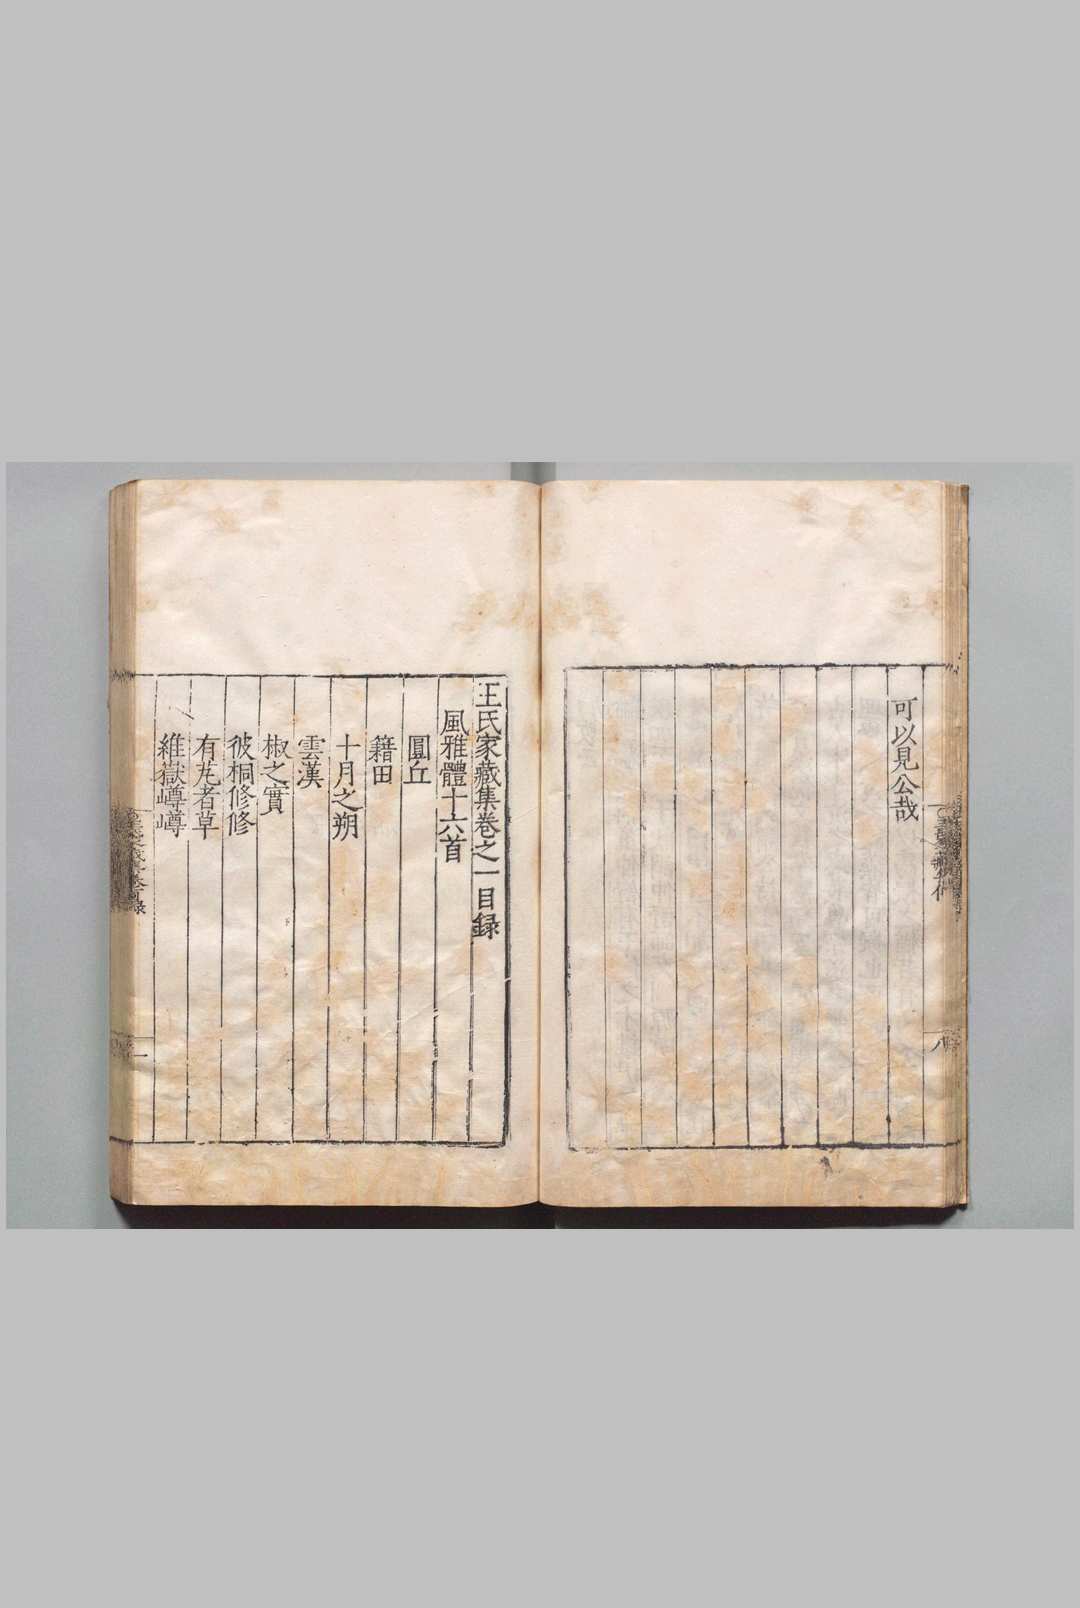 可以見公哉
八
王氏家藏集卷之一目録
風雅體十六首
圓丘
籍田
十月之朔
雲漢
椒之實
彼桐修修
有芃者草
維嶽嶟嶟
一